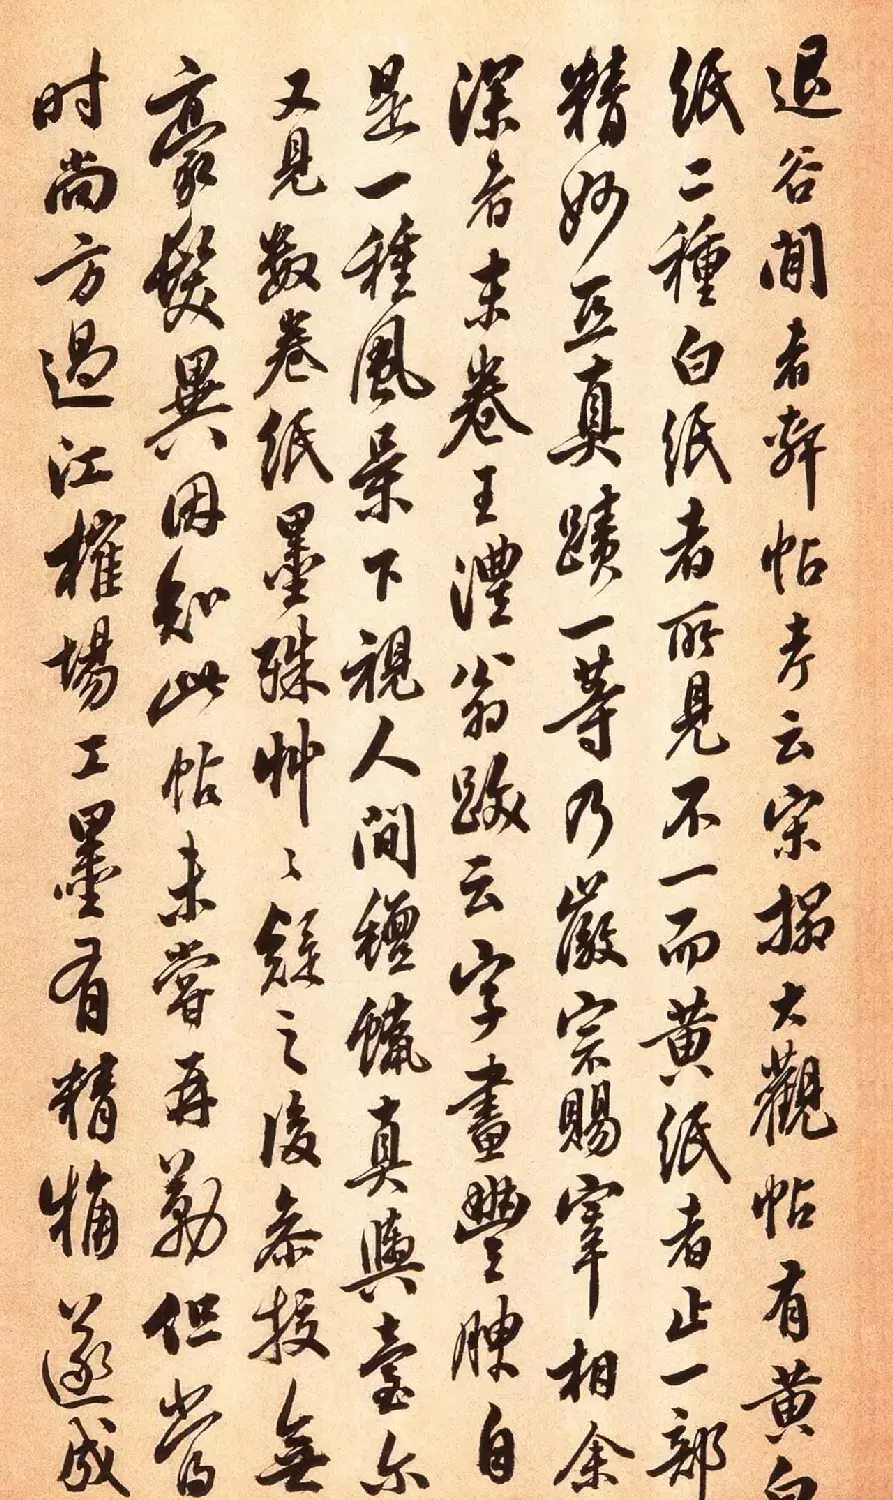 退谷閒者軒帖考云宋搨大觀帖有黄白
紙二種白紙者所見不一而黄紙者止一部
精妙亞真蹟一等乃徽宗賜宰相余
深者末卷王澧翁跋云字畫豐腴自
是一種風景下視人間種蠟真輿臺尔
又見数卷紙墨殊艸〻疑之後叅挍無
豪髮異因知此帖未嘗再勒但當
时尚方過江榷場工墨有精觕遂成